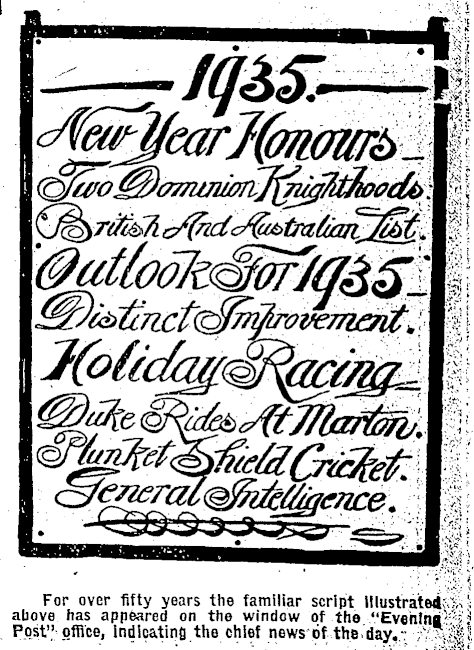 1935.
New Year Honours
Two Dominion Knighthoods.
British And Australian List.
Outlook For 1935
Distinct Improvement.
Holiday Racing
Duke Rides At Marton.
Plunket Shield Cricket.
General Intelligence.
For over fifty years the familiar script illustrated
above has appeared on the window of the "Evening
Post" office, indicating the chief news of the day.